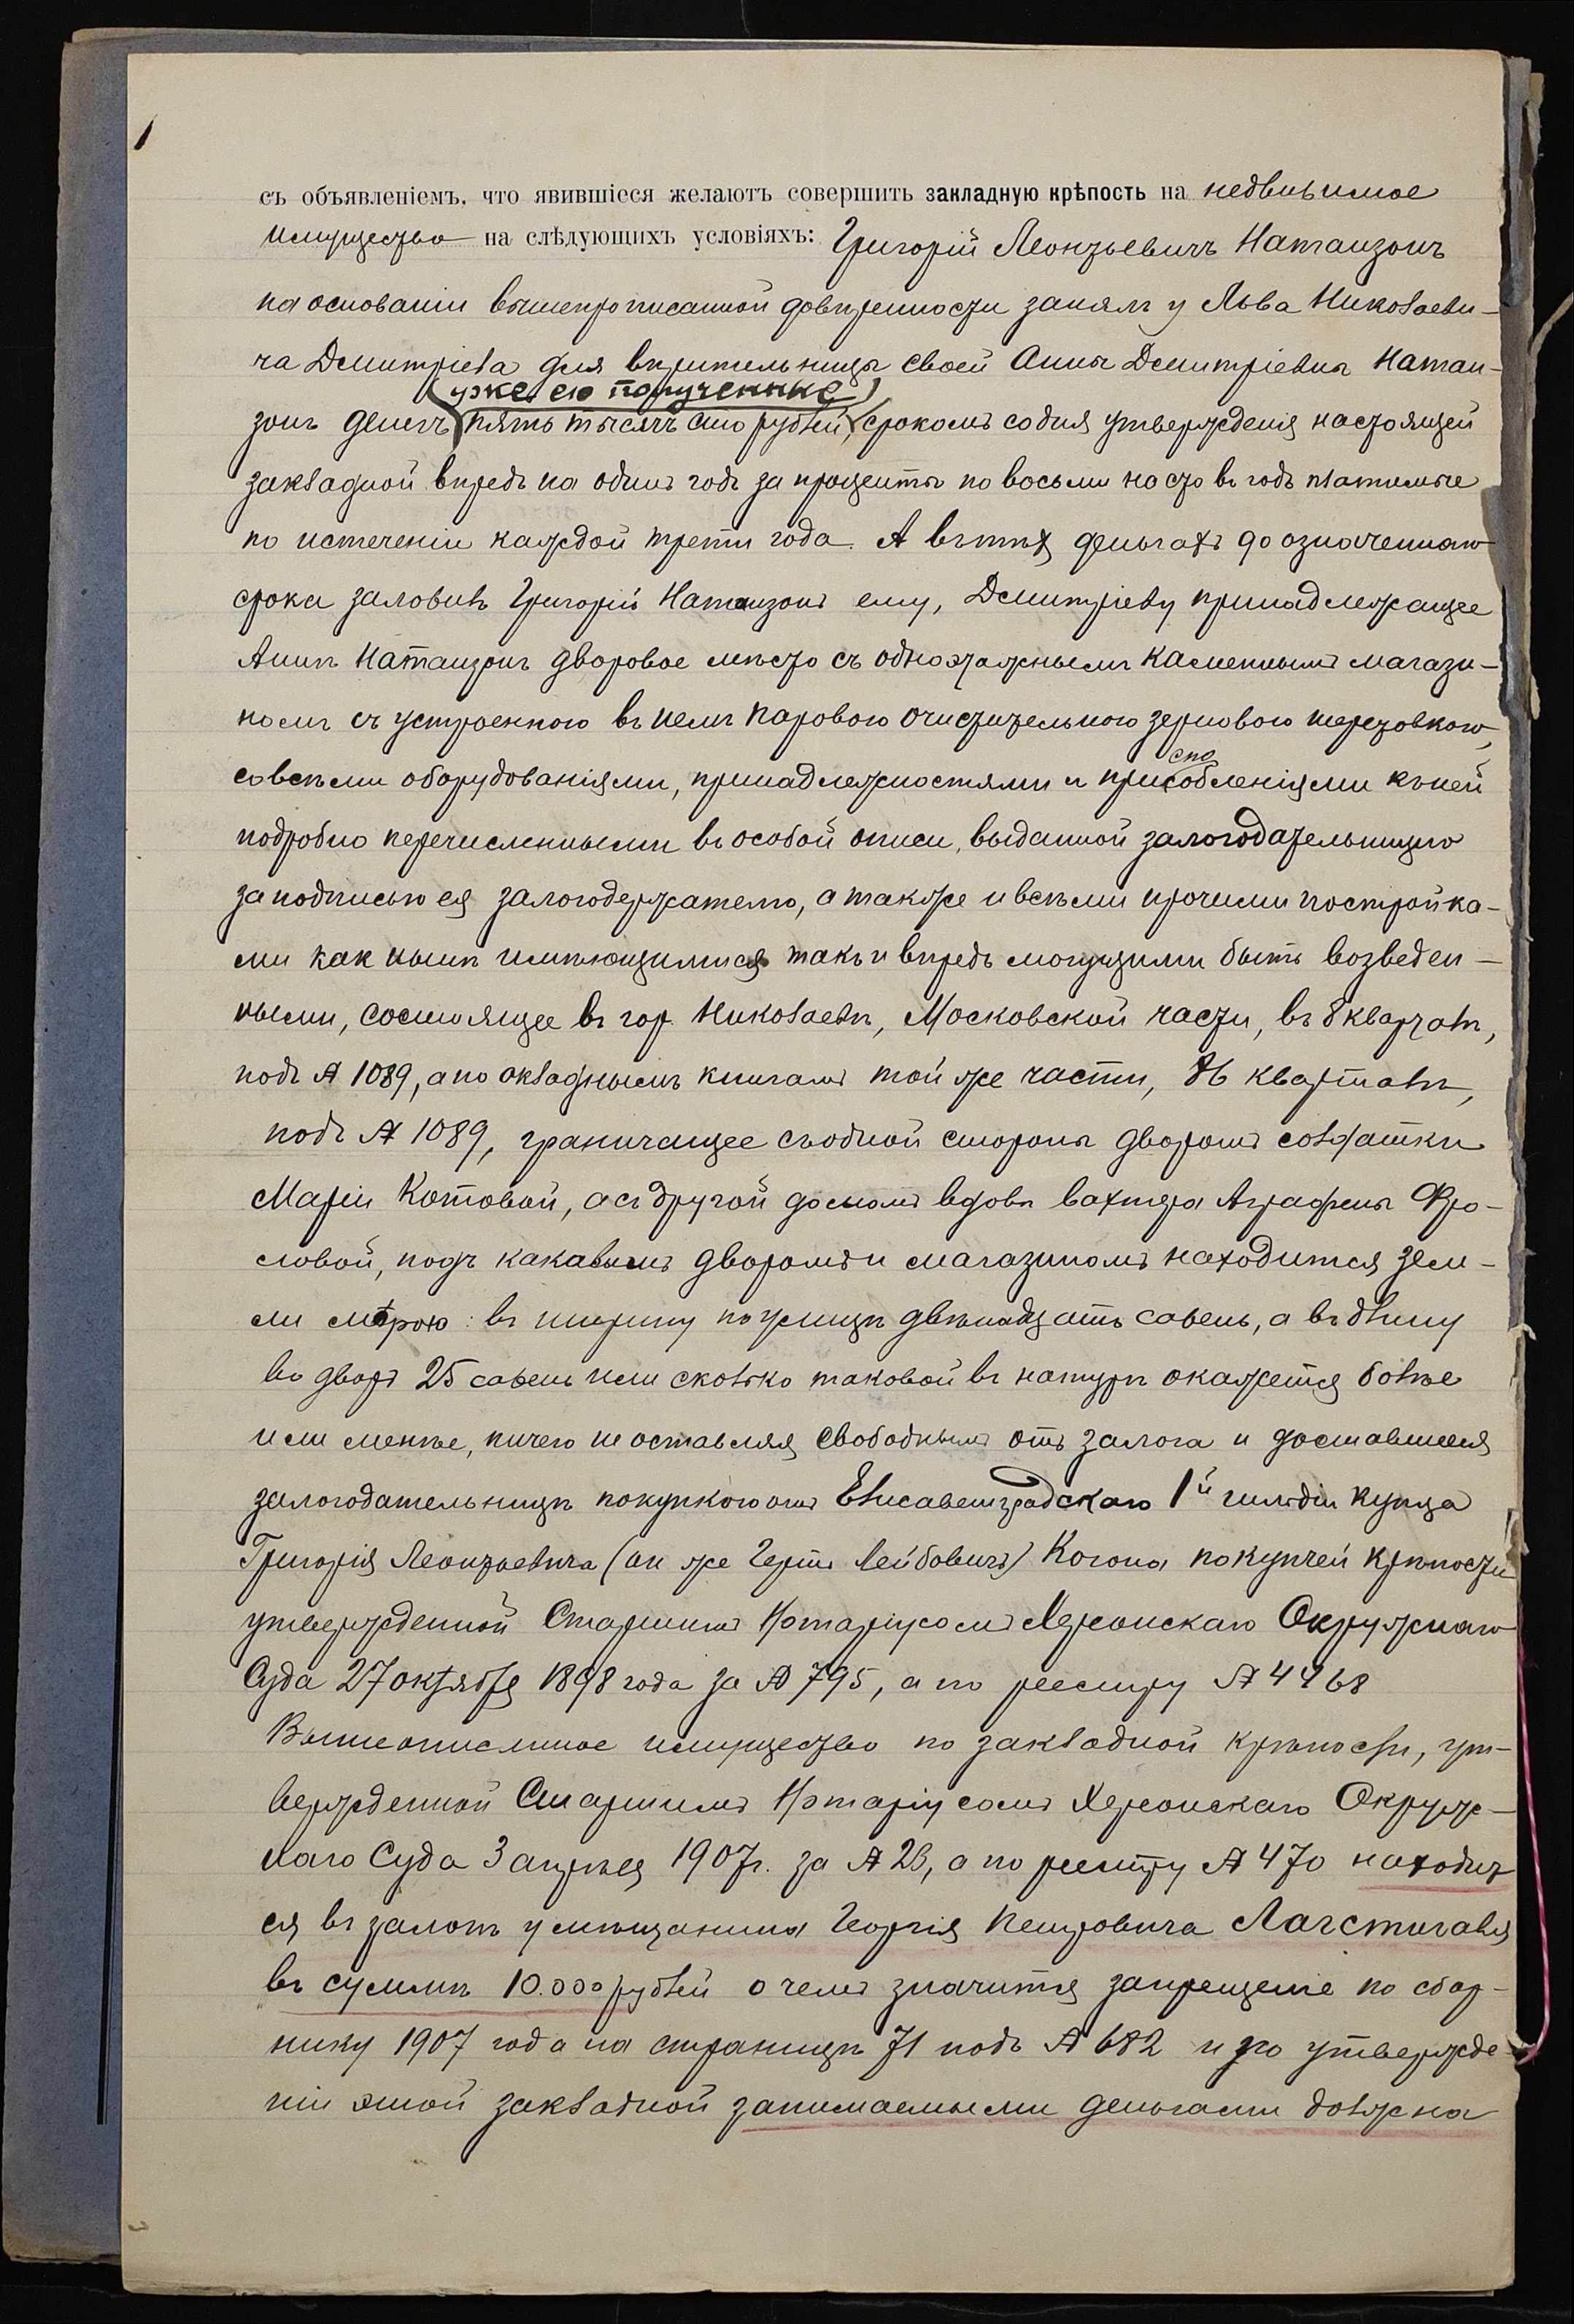 съ объявленіемъ, что явившіеся желаютъ совершить закладную крѣпость на недвижимое
имущество на слѣдующихъ условіяхъ: Григорій Леонтьевичъ Натанзонъ
на основаніи вышепрописанной довѣренности занялъ у Льва Николаеви-
ча Дмитріева для вѣрительницы своей Анны Дмитріевны Натан-
(уже ею полученные)
зонъ денегъ пять тысячъ сто рублей, срокомъ со дня утвержденія настоящей
закладной впредь на одинъ годъ за проценты по восьми на сто въ годъ платимые
по истеченіи каждой трети года. А въ тѣхъ деньгахъ до означеннаго
срока заложилъ Григорій Натанзонъ ему, Дмитріеву принадлежащее
Аннѣ Натанзонъ дворовое мѣсто съ одноэтажнымъ каменнымъ магази-
номъ съ устроенною въ немъ паровою очистительною зерновою шеретовкою,
спо
со всѣми оборудованіями, принадлежностями и присобленіями къ ней
подробно перечисленными въ особой описи, выданной залогодательницею
за подписью ея залогодержателю, а также и всѣми прочими постройка-
ми как нынѣ имѣющимися такъ и впредь могущими быть возведен-
ными, состоящее въ гор. Николаевѣ, Московской части, въ 8 кварталѣ,
подъ № 1089, а по окладнымъ книгамъ той же части, 86 кварталѣ,
подъ № 1089, граничащее съ одной стороны дворомъ солдатки
Маріи Котовой, а съ другой домомъ вдовы вахтера Аграфены Фро-
ловой, подъ каковымъ дворомъ и магазиномъ находится зем-
ли мѣрою: въ ширину по улицѣ двѣнадцать сажень, а въ длину
во дворъ 25 сажень или сколько таковой въ натурѣ окажется болѣе
или менѣе, ничего не оставляя свободнымъ отъ залога и доставшееся
залогодательницѣ покупкою отъ Елисаветградскаго 1й гильдіи купца
Григорія Леонтьевича (он же Герш Лейбовичъ) Когона по купчей крѣпости
утвержденной Старшимъ Нотаріусомъ Херсонскаго Окружнаго
Суда 27 октября 1898 года за № 795, а по реестру № 4468
Вышеописанное имущество по закладной крѣпости, ут-
вержденной Старшимъ Нотаріусомъ Херсонскаго Окруж-
наго Суда 3 апрѣля 1907 г. за № 28, а по реестру № 470 находит
ся въ залогѣ у мѣщанина Георгія Петровича
въ суммѣ 10.000 рублей о чемъ значится запрещеніе по сбор-
нику 1907 года на страницѣ 71 подъ № 682 и по утвержде-
ніи этой закладной занимаемыми деньгами должна